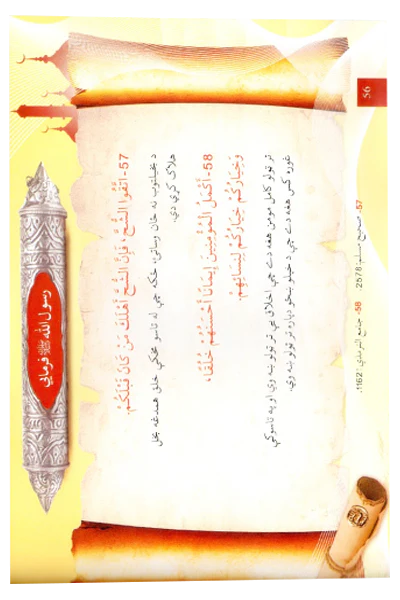 رسول الله ﷺ فرمائي
57-اتَّقُوا الشُّحَّ، فَإِنَّ الشُّحَّ أَهْلَكَ مَنْ كَانَ قَبْلَكُمْ.
د بخيلتوب نه ځان وساتئ، ځکه چې له تاسو مخکې خلق همدغه بخل
هلاک کړي دي.
58-أَكْمَلُ الْمُؤْمِنِينَ إِيمَانًا أَحْسَنُهُمْ خُلُقًا،
وَخِيَارُكُمْ خِيَارُكُمْ لِنِسَائِهِمْ.
تر ټولو کامل مومن هغه دے چې اخلاق يې تر ټولو ښه وي او په تاسو کې
غوره کس هغه دے چې د خپلو ښځو دپاره تر ټولو ښه وي.
57- صحيح مسلم: 2578. 58- جامع الترمذي: 1162.
56